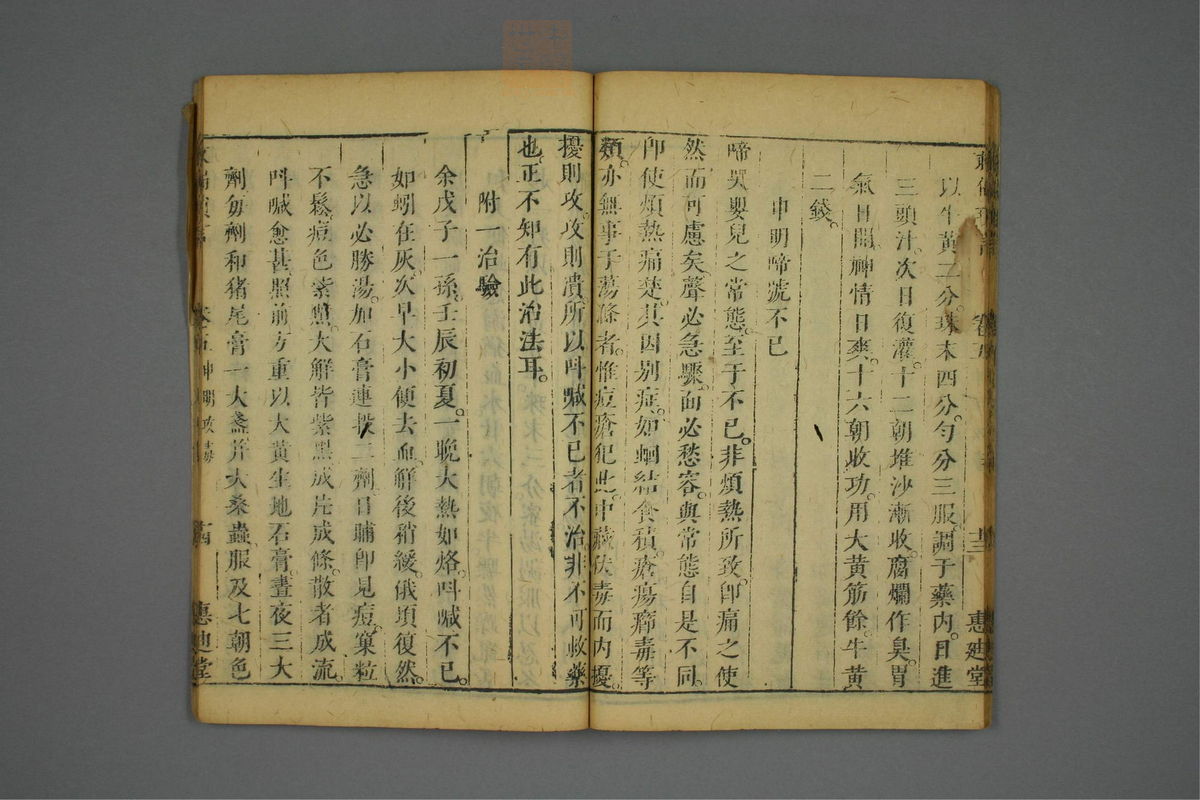 以牛黃二分。珠末四分。勻分三服。調于藥內。日進
三頭汁。次日復灌。十二朝堆沙漸收。腐爛作臭。胃
氣日開。神情日爽。十六朝收功。用大黃筋餘。牛黃
二錢。
申明啼號不已
啼哭嬰兒之常態。至于不已。非煩熱所致。卽痛之使
然。而可慮矣。聲必急驟。面必愁容。與常態自是不同。
卽使煩熱痛楚。其因別症。如蛔結食積。瘡瘍癤毒等
類。亦無事于蕩滌者。惟痘瘡犯此。中藏伏毒。而內擾。
擾則攻。攻則潰。所以呌喊不已者不治。非不可救藥
也。正不知有此治法耳。
附一治驗
余戊子一孫。壬辰初夏。一晚大熱如烙。呌喊不已。
如蚓在灰。次早大小便去血。解後稍緩。俄頃復然。
急以必勝湯加石膏連投二劑。日晡卽見痘。窠粒
不鬆。痘色紫黑。大解皆紫黑成片成條。散者成流。
呌喊愈甚。照前方重以大黃生地石膏。晝夜三大
劑。每劑和猪尾膏一大盞。幷大桑蟲服。及七朝色
惠迪堂
惠迪堂